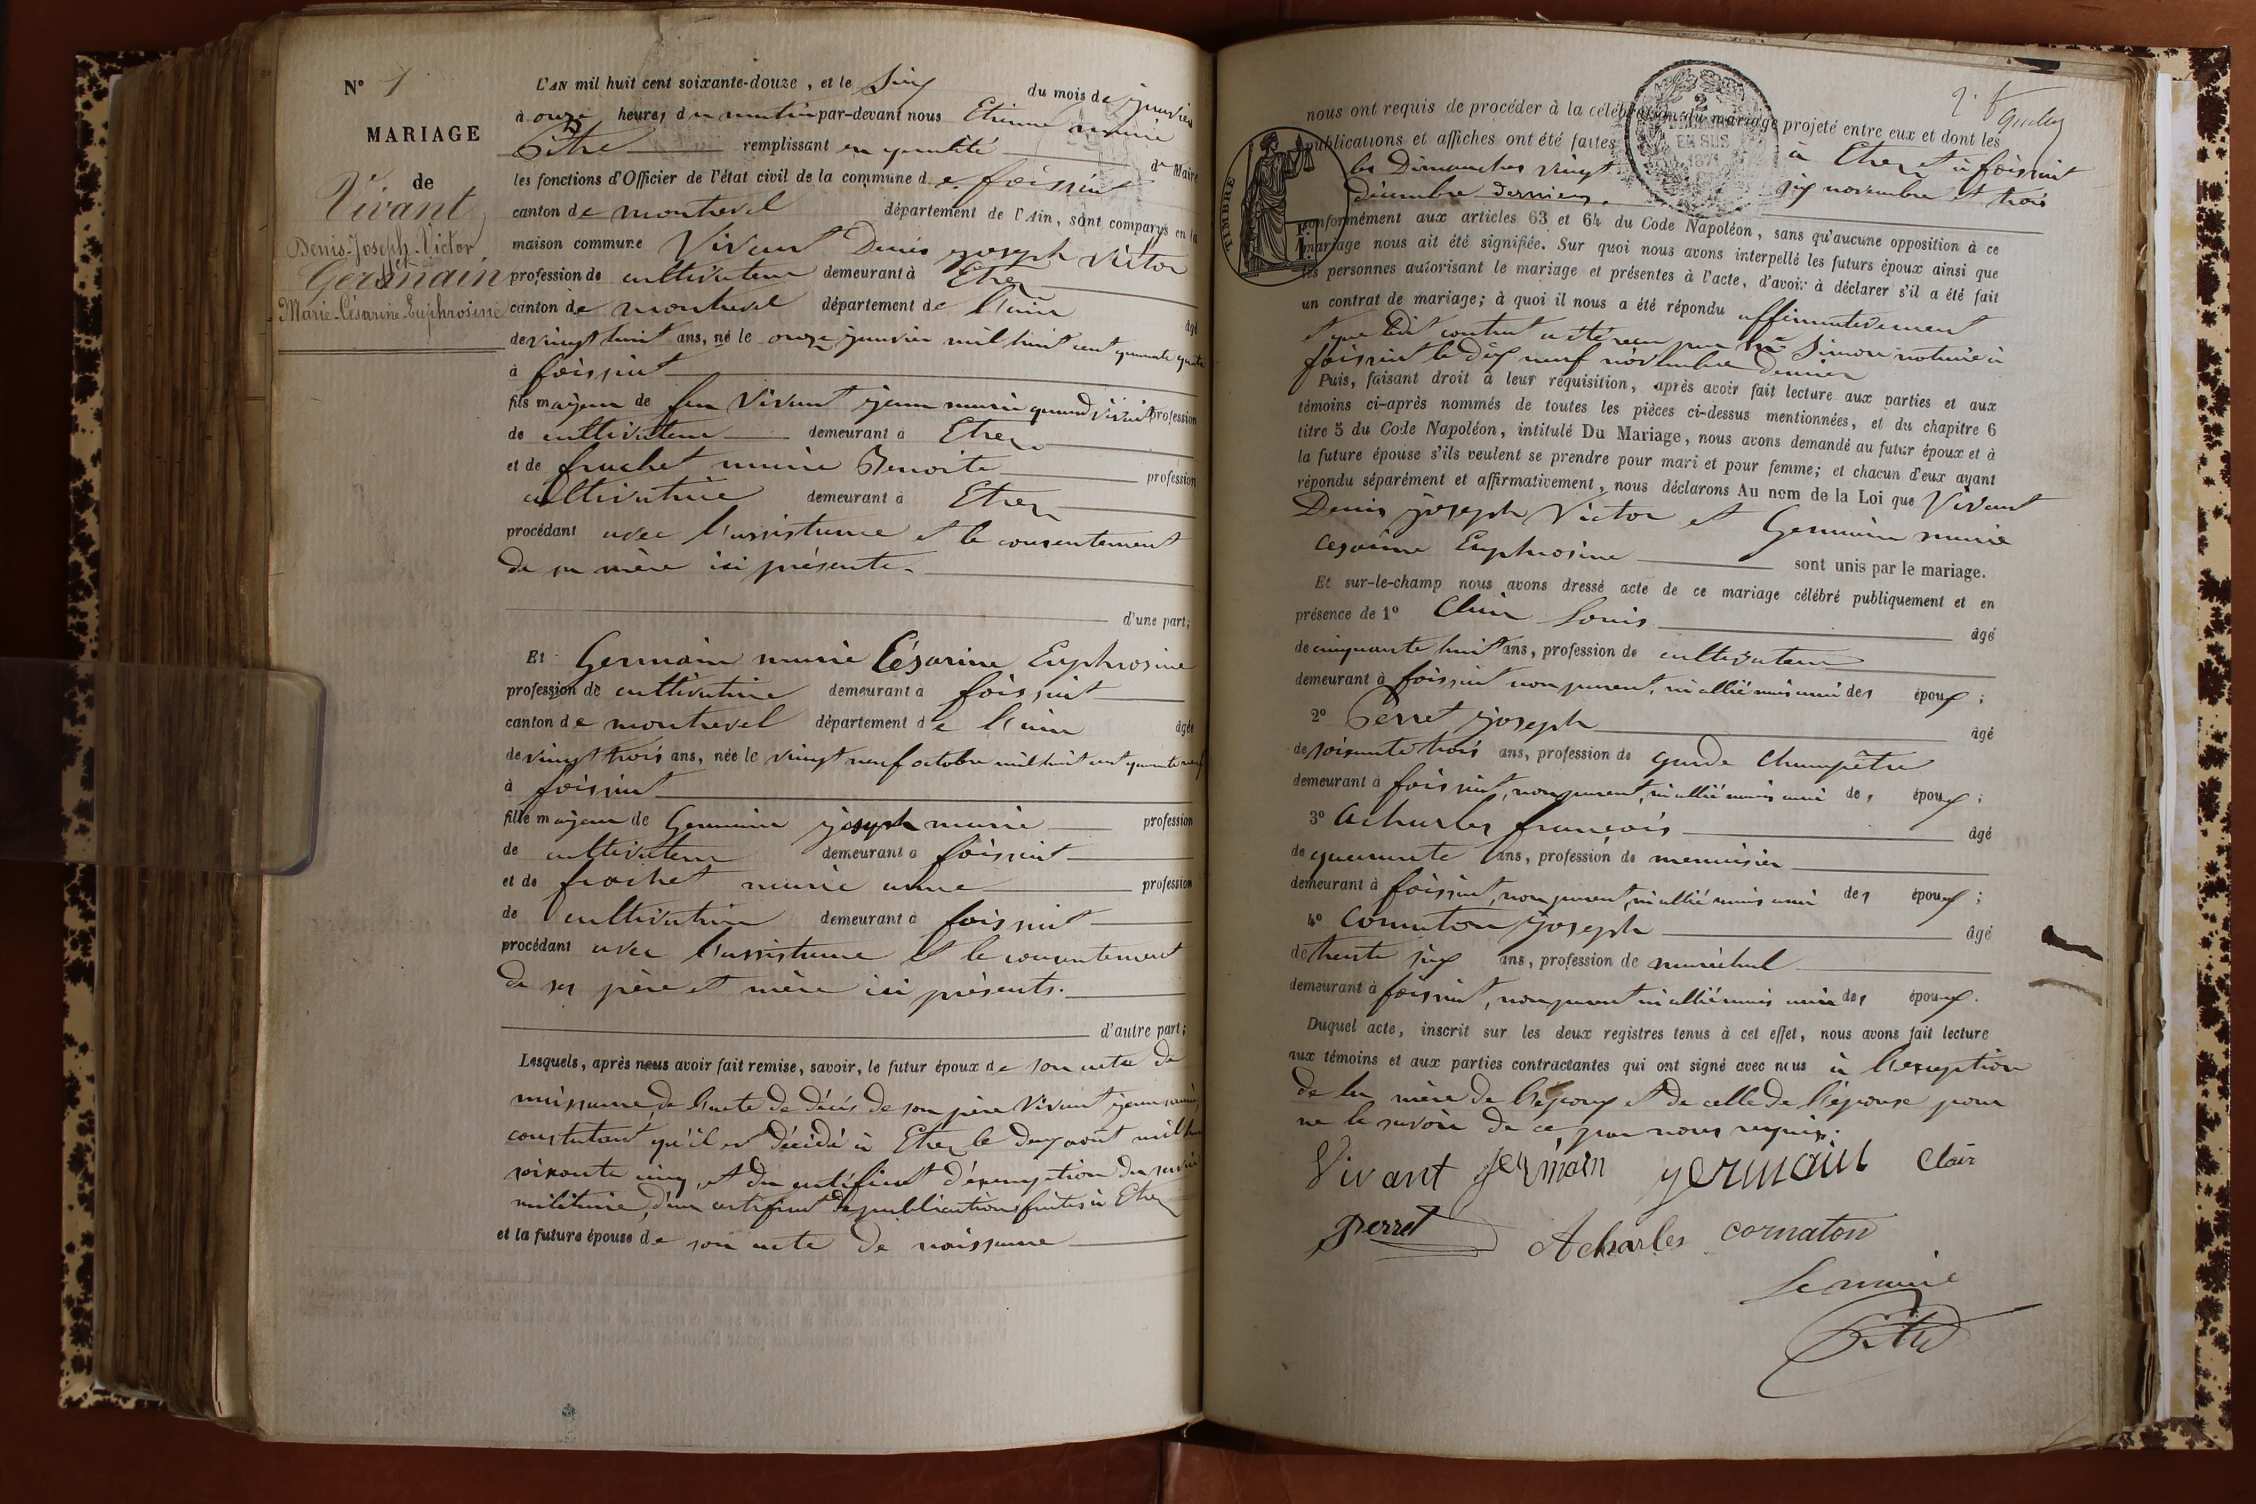 N° 1
MARIAGE
de
Vivant
Denis-Joseph-Victor
et
Germain
Marie-Césarine-Euphrosine
L'AN mil huit cent soixante-douze, et le six du mois de janvier
à onze heures du matin par-devant nous Etienne marie
Pitre remplissant en qualité de Maire
les fonctions d'Officier de l'état civil de la commune de foissiat
canton de montrevel département de l'Ain, sont comparus en la
maison commune Vivant Denis joseph Victor
profession de cultivateur demeurant à Etrez
canton de montrevel département de l'ain âgé
de vingt huit ans, né le onze janvier mil huit cent quarante quatre
à foissiat
fils majeur de feu Vivant jean marie quand vivait profession
de cultivateur demeurant à Etrez
et de frachet marie Benoite profession
cultivatrice demeurant à Etrez
procédant avec l'assistance et le consentement
de sa mère ici présente.
d'une part;
Et Germain marie Césarine Euphrosine
profession de cultivatrice demeurant à foissiat
canton de montrevel département de l'ain âgée
de vingt trois ans, née le vingt neuf octobre mil huit cent quarante neuf
à foissiat
fille majeure de Germain joseph marie profession
de cultivateur demeurant à foissiat
et de frachet marie anne profession
de cultivatrice demeurant à foissiat
procédant avec l'assistance et le consentement
de ses père et mère ici présents.
d'autre part;
Lesquels, après nous avoir fait remise, savoir, le futur époux de son acte de
naissance, de l'acte de décès de son père Vivant jean marie,
constatant qu'il est décédé à Etrez le deux août mil huit
soixante cinq, et du certificat d'exemption du service
militaire, d'un certificat de publications faites à Etrez
et la future épouse de son acte de naissance
nous ont requis de procéder à la célébration du mariage projeté entre eux et dont les
publications et affiches ont été faites à Etrez et à foissiat
les Dimanches vingt six novembre et trois
décembre derniers.
2
EN SUS
1871
TIMBRE
conformément aux articles 63 et 64 du Code Napoléon, sans qu'aucune opposition à ce
mariage nous ait été signifiée. Sur quoi nous avons interpellé les futurs époux ainsi que
les personnes autorisant le mariage et présentes à l'acte, d'avoir à déclarer s'il a été fait
un contrat de mariage; à quoi il nous a été répondu affirmativement
et que ledit contrat a été reçu par Me Simon notaire à
foissiat le dix neuf novembre dernier
Puis, faisant droit à leur réquisition, après avoir fait lecture aux parties et aux
témoins ci-après nommés de toutes les pièces ci-dessus mentionnées, et du chapitre 6
titre 5 du Code Napoléon, intitulé Du Mariage, nous avons demandé au futur époux et à
la future épouse s'ils veulent se prendre pour mari et pour femme; et chacun d'eux ayant
répondu séparément et affirmativement, nous déclarons Au nom de la Loi que Vivant
Denis joseph Victor et Germain marie
Cesarine Euphrosine sont unis par le mariage.
Et sur-le-champ nous avons dressé acte de ce mariage célébré publiquement et en
présence de 1° Clair Louis âgé
de cinquante huit ans, profession de cultivateur
demeurant à foissiat non parent, ni allié mais ami des époux;
2° Perret joseph âgé
de soixante trois ans, profession de garde champêtre
demeurant à foissiat, non parent, ni allié mais ami des époux;
3° Acharles françois âgé
de quarante ans, profession de menuisier
demeurant à foissiat, non parent, ni allié mais ami des époux;
4° Cornaton joseph âgé
de trente six ans, profession de maréchal
demeurant à foissiat, non parent ni allié mais ami des époux.
Duquel acte, inscrit sur les deux registres tenus à cet effet, nous avons fait lecture
aux témoins et aux parties contractantes qui ont signé avec nous à l'exception
de la mère de l'époux et de celle de l'épouse pour
ne le savoir de ce par nous requis.
Vivant germain germain Clair
perret Acharles cornaton
Le maire
Pitre